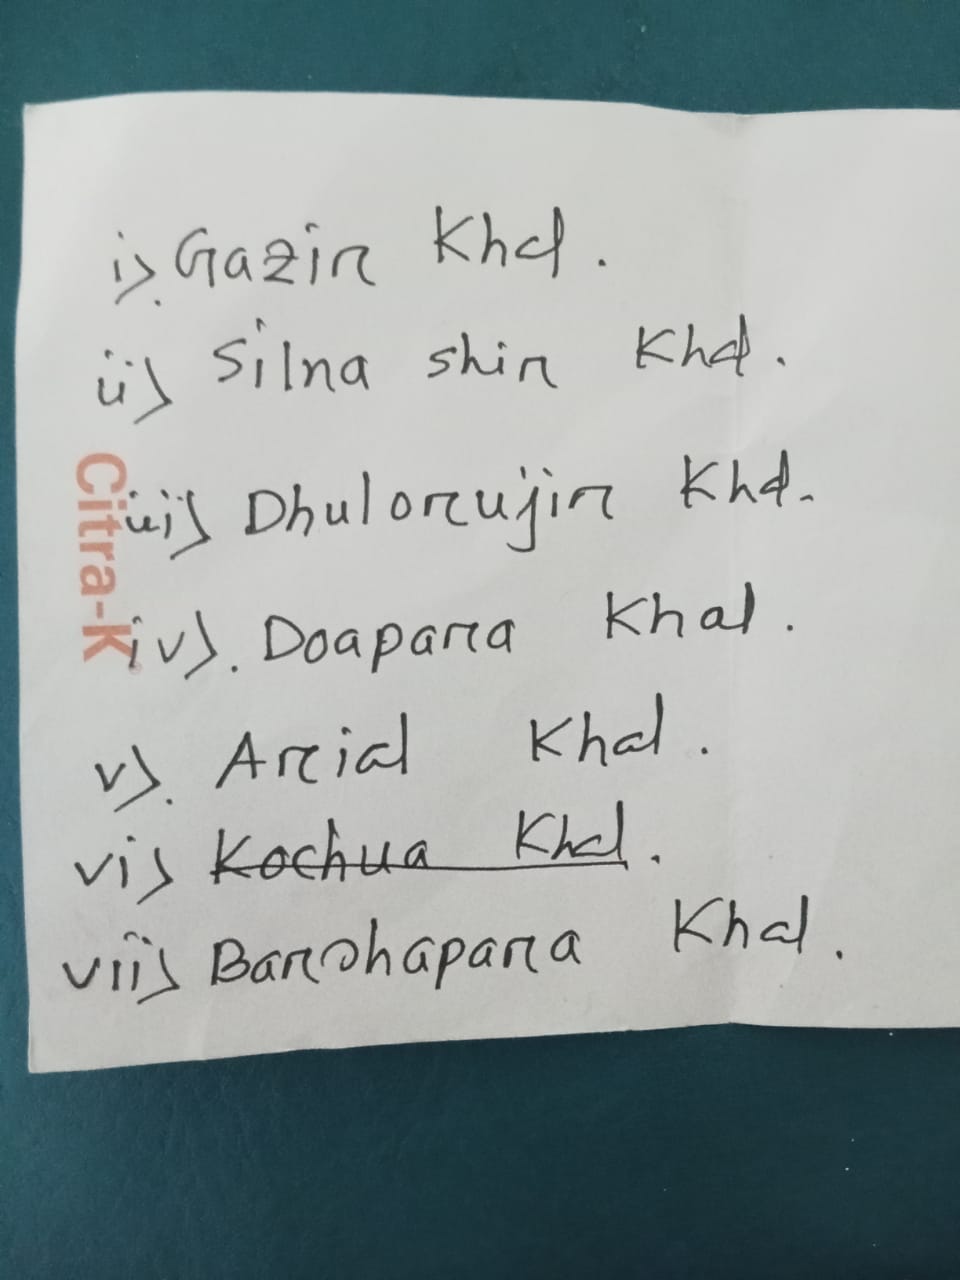 i). Gazir Khal.
ii) Silna shir Khal.
iii) Dhulorujir Khal.
iv). Doapara Khal.
v). Arial Khal.
vi) Kochua Khal.
vii) Barohapara Khal.
Citra-K